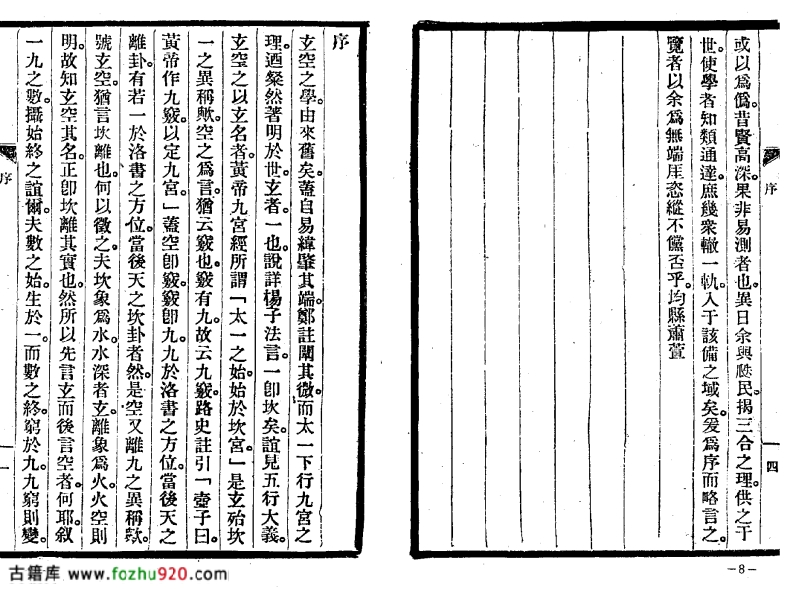 或以爲僞。昔賢高深。果非易測者也。異日余與㬵民揭三合之理。供之于
世。使學者知類通達。庶幾衆轍一軌。入于該備之域矣。爰爲序而略言之。
覽者以余爲無端厓恣縱不儻否乎。均縣蕭萱
序
四
—8—
序
玄空之學。由來舊矣。蓋自易緯肇其端。鄭註闡其微。而太一下行九宮之
理。迺粲然著明於世。玄者。一也。說詳楊子法言。一卽坎矣。誼見五行大義。
玄空之以玄名者。黃帝九宮經所謂「太一之始。始於坎宮。」是玄殆坎
一之異稱歟。空之爲言。猶云竅也。竅有九。故云九竅。路史註引「壺子曰。
黃帝作九竅。以定九宮。」蓋空卽竅。竅卽九。九於洛書之方位。當後天之
離卦。有若一於洛書之方位。當後天之坎卦者。然。是空又離九之異稱歟。
號玄空。猶言坎離也。何以徵之。夫坎象爲水。水深者玄。離象爲火。火空則
明。故知玄空其名。正卽坎離其實也。然所以先言玄而後言空者。何耶。叙
一九之數。攝始終之誼爾。夫數之始。生於一。而數之終。窮於九。九窮則變。
序
一
古籍库 www.fozhu920.com